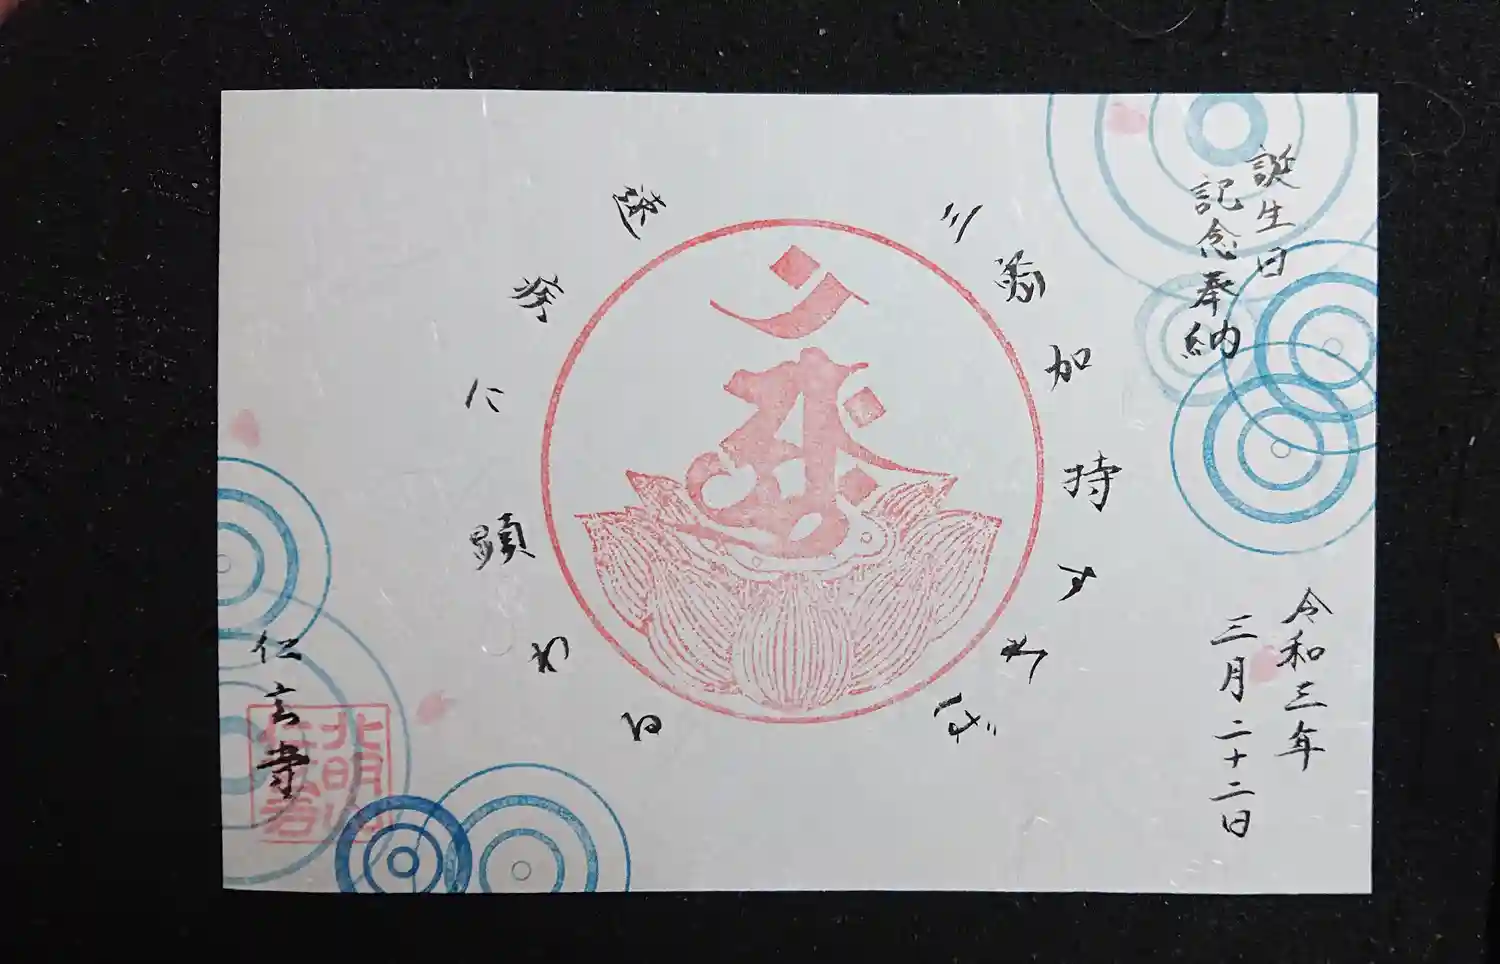 誕生日
記念奉納
令和三年
三月二十二日
三密加持すれば
速疾に顕わる
仁玄寺